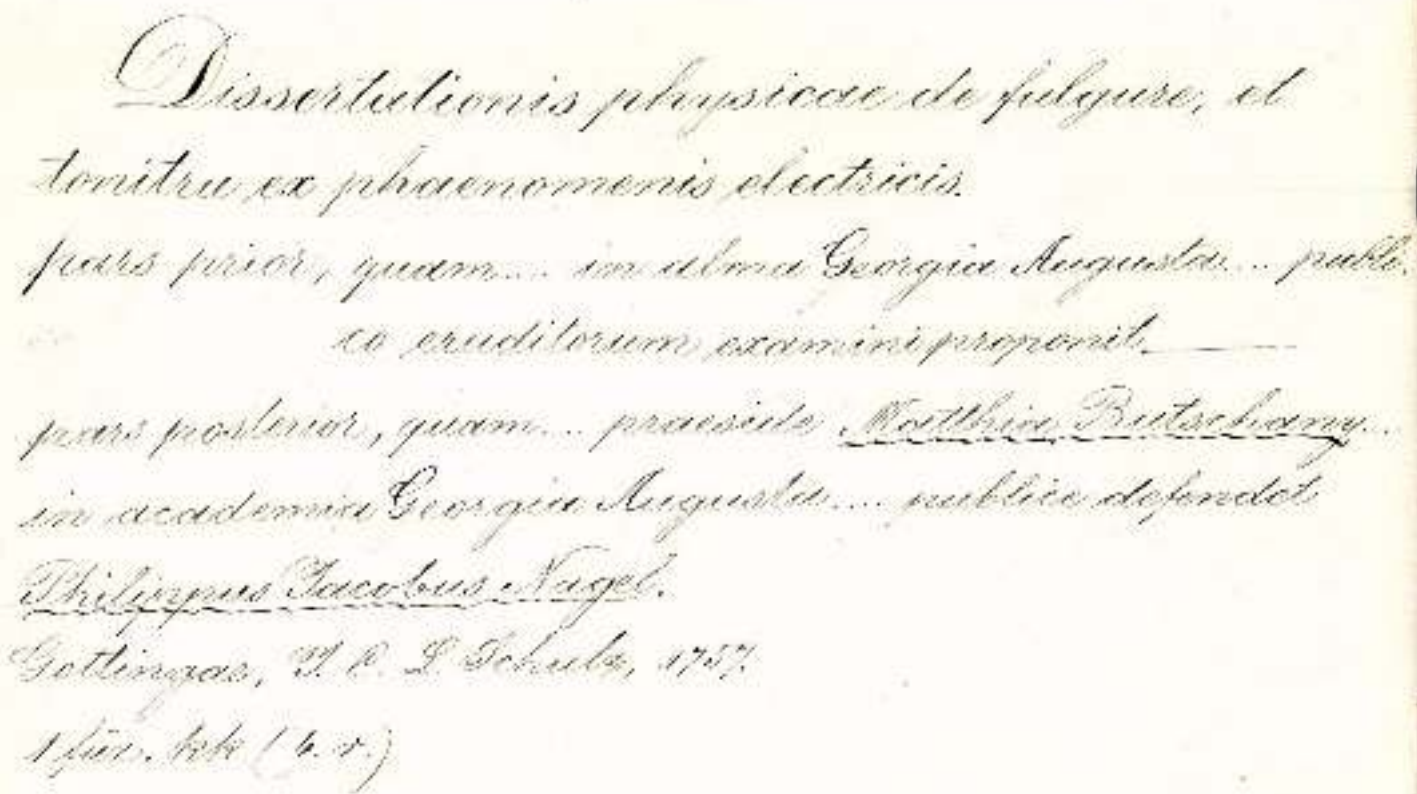 Dissertationis physicae de fulgure, et
tonitru ex phaenomenis electricis.
pars prior, quam.... in alma Georgia Augusta.... publi-
co eruditorum examini proponit.
pars posterior, quam.... praeside Matthia Butschany....
in academia Georgia Augusta.... publice defendet
Philippus Jacobus Nagel.
Gottingae, J. C. L. Schulz, 1757.
1 füz. (4. r.)